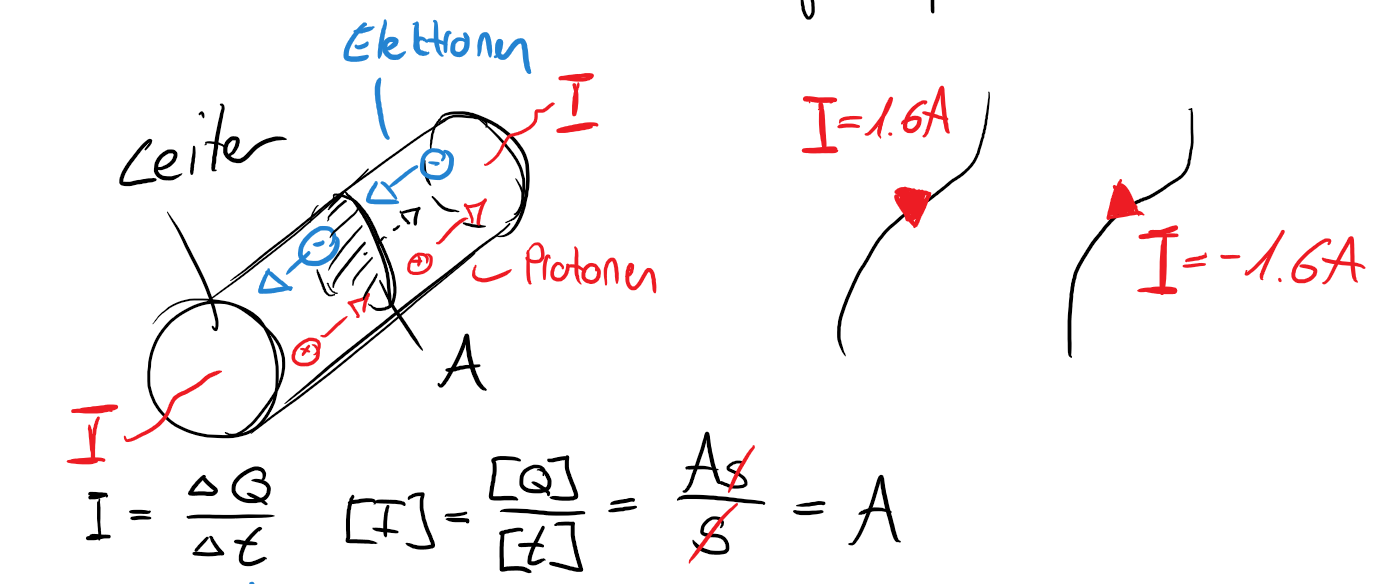 Elektronen
I
Leiter
Protonen
A
I
I=1.6A
I=-1.6A
I = ΔQ/Δt [I] = [Q]/[t] = As/s = A